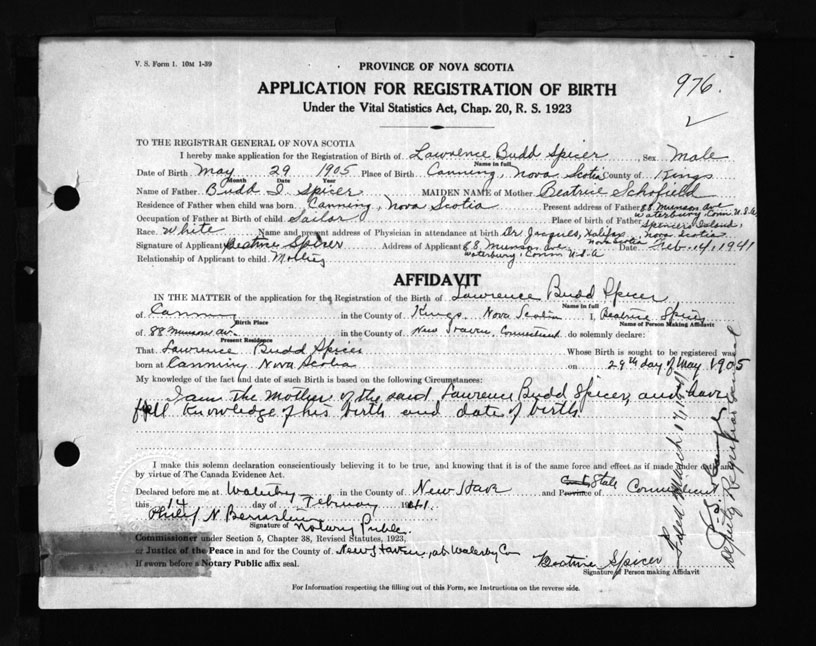 V. S. Form 1. 10M 1-39
PROVINCE OF NOVA SCOTIA
976.
APPLICATION FOR REGISTRATION OF BIRTH
Under the Vital Statistics Act, Chap. 20, R. S. 1923
TO THE REGISTRAR GENERAL OF NOVA SCOTIA
I hereby make application for the Registration of Birth of Lawrence Budd Spicer, Sex Male
Name in full
Date of Birth May 29 1905 Place of Birth Canning Nova Scotia County of Kings
Month Date Year
Name of Father Budd I. Spicer MAIDEN NAME of Mother Beatrice Schofield
Residence of Father when child was born Canning, Nova Scotia Present address of Father 88 Munson Ave
Waterbury, Conn U.S.A
Occupation of Father at Birth of child Sailor Place of birth of Father Spencers Island,
Nova Scotia
Race. White Name and present address of Physician in attendance at birth Dr. Jacques, Halifax
Nova Scotia
Signature of Applicant Beatrice Spicer Address of Applicant 88 Munson Ave Date Feb. 14, 1941
Waterbury, Conn U.S.A
Relationship of Applicant to child Mother
AFFIDAVIT
IN THE MATTER of the application for the Registration of the Birth of Lawrence Budd Spicer
Name in full
of Canning in the County of Kings Nova Scotia I, Beatrice Spicer
Birth Place Name of Person Making Affidavit
of 88 Munson Ave in the County of New Haven, Connecticut do solemnly declare:
Present Residence
That Lawrence Budd Spicer Whose Birth is sought to be registered was
born at Canning Nova Scotia on 29th day of May 1905
My knowledge of the fact and date of such Birth is based on the following Circumstances:
I am the Mother of the said Lawrence Budd Spicer, and have
full knowledge of his birth and date of birth
I make this solemn declaration conscientiously believing it to be true, and knowing that it is of the same force and effect as if made under oath and
by virtue of The Canada Evidence Act.
Declared before me at Waterby in the County of New Haven and Province of State Connecticut
this 14 day of February 1941.
Philip N. Bernstein
Signature of Notary Public
Commissioner under Section 5, Chapter 38, Revised Statutes, 1923,
or Justice of the Peace in and for the County of New Haven, at Waterby Con
If sworn before a Notary Public affix seal.
Beatrice Spicer
Signature of Person making Affidavit
For Information respecting the filling out of this Form, see Instructions on the reverse side.
Filed March
Deputy Registrar General